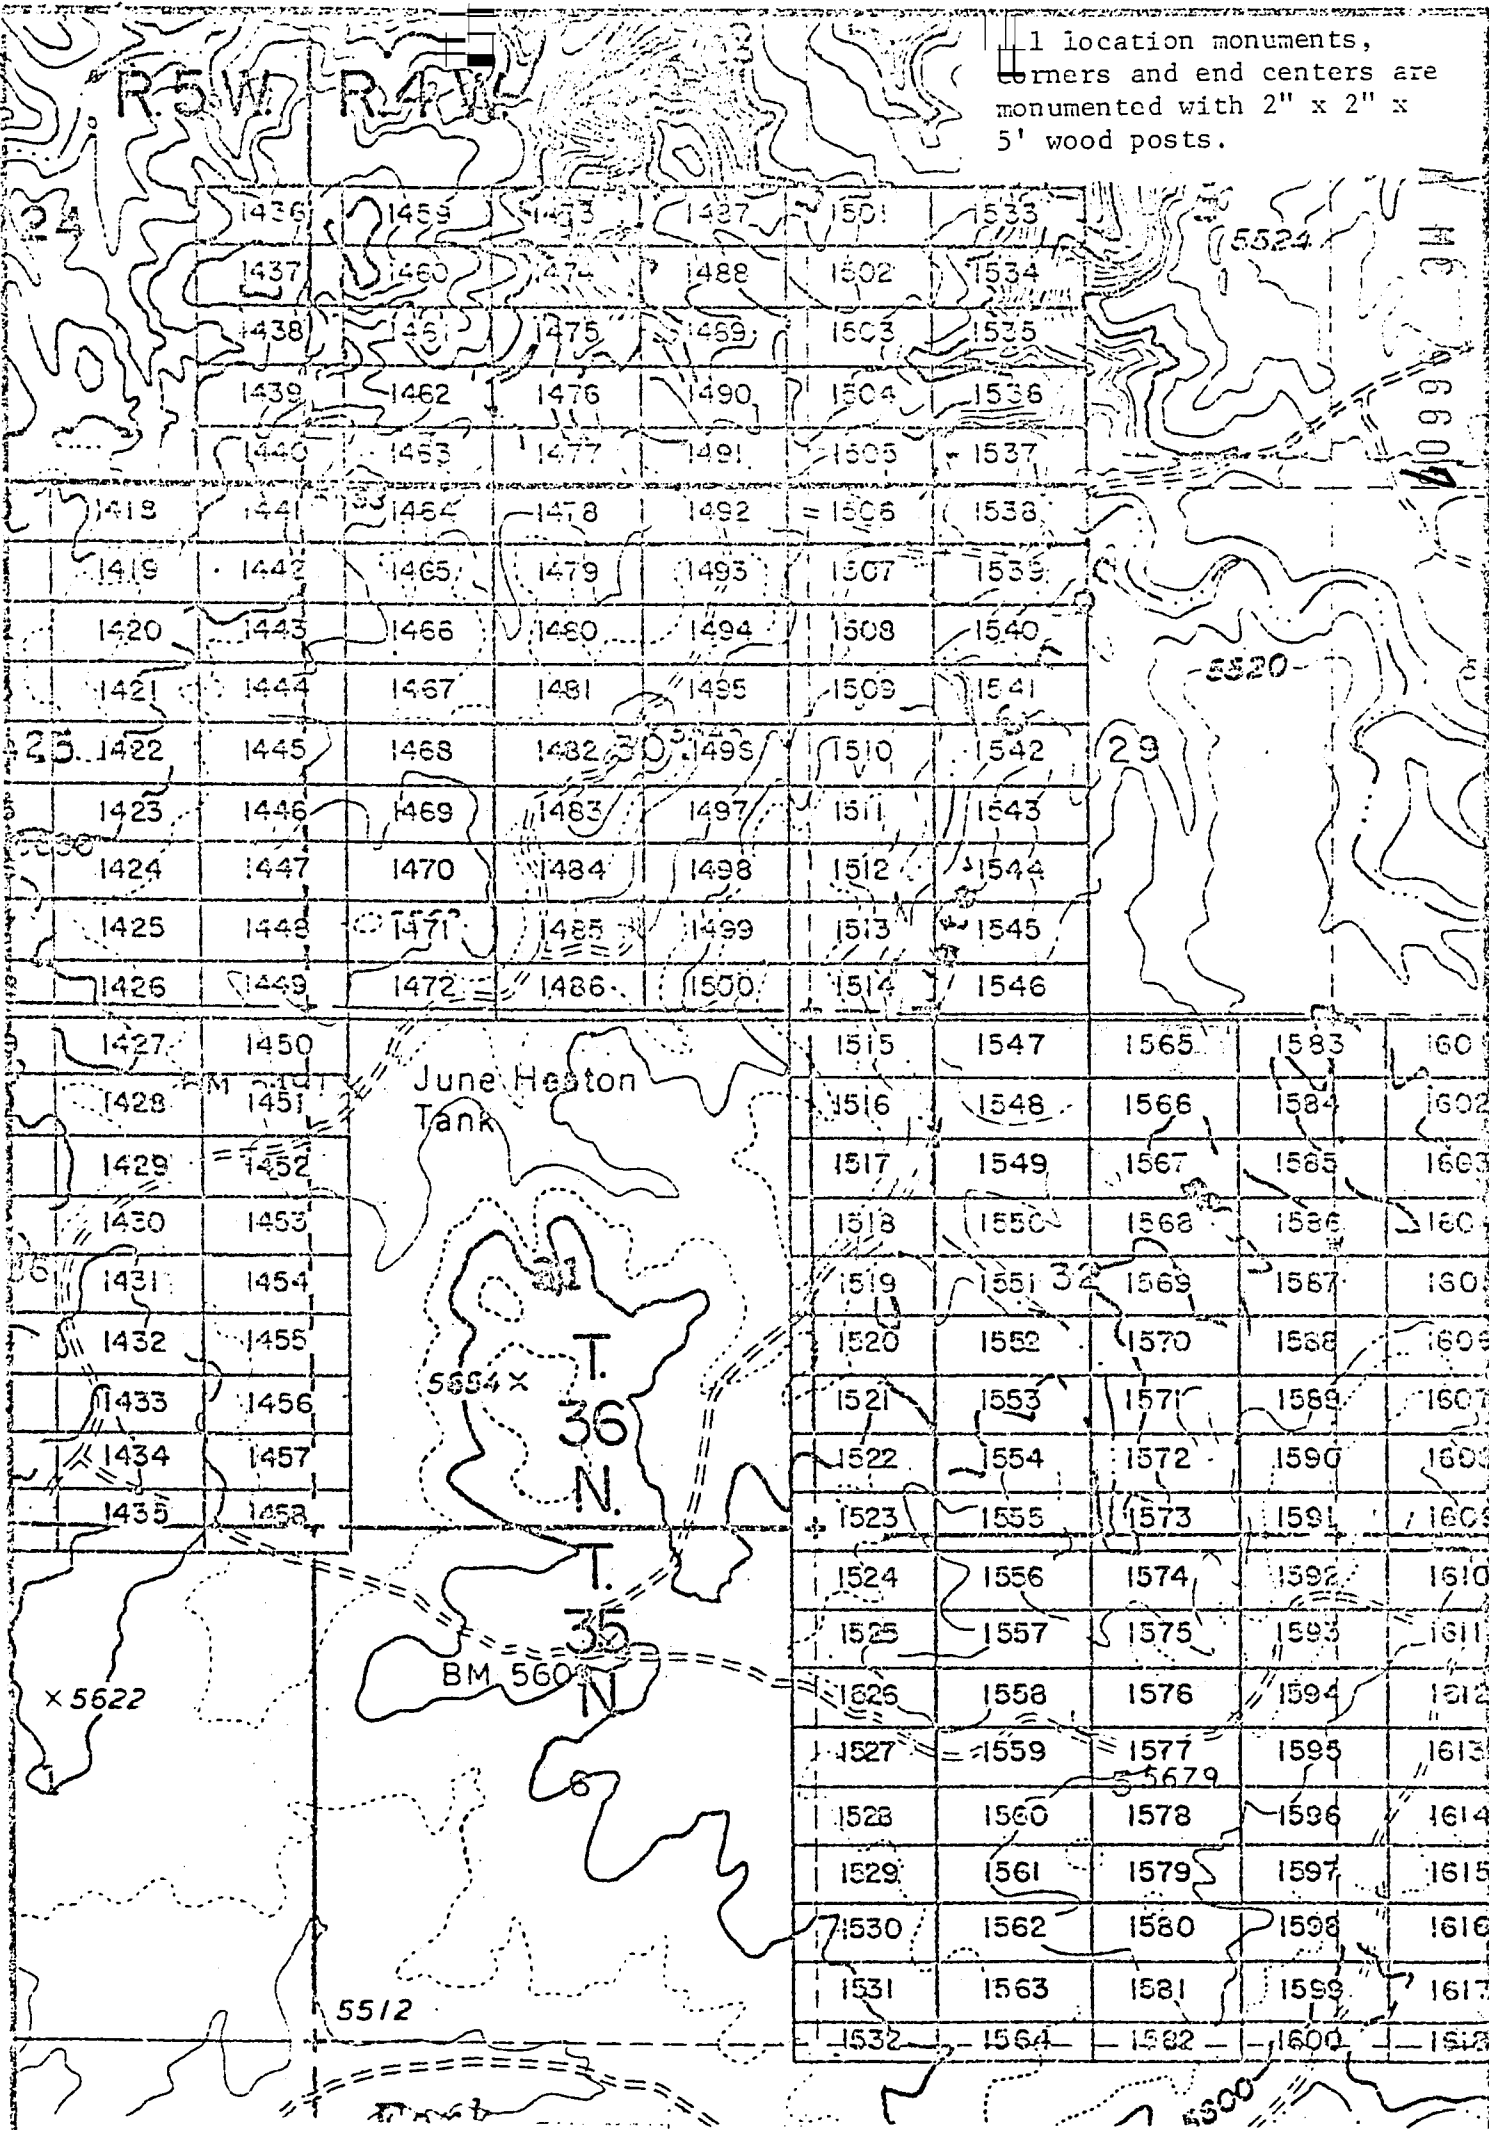 1 location monuments,
rners and end centers are
monumented with 2" x 2" x
5' wood posts.
R.5W. R.4W.
24 1436 1459 1473 1487 1501 1533 5524
1437 1460 1474 1488 1502 1534
1438 1461 1475 1489 1503 1535
1439 1462 1476 1490 1504 1536
1440 1463 1477 1491 1505 1537
1418 1441 1464 1478 1492 1506 1538
1419 1442 1465 1479 1493 1507 1539
1420 1443 1466 1480 1494 1508 1540
5520
1421 1444 1467 1481 1495 1509 1541
25 1422 1445 1468 1482 30 1496 1510 1542 29
1423 1446 1469 1483 1497 1511 1543
1424 1447 1470 1484 1498 1512 1544
1425 1448 1471 1485 1499 1513 1545
1426 1449 1472 1486 1500 1514 1546
1427 1450 1515 1547 1565 1583 160
June Heaton
Tank
1428 1451 1516 1548 1566 1584 1602
1429 1452 1517 1549 1567 1585 1603
1430 1453 1518 1550 1568 1586 160
36 1431 1454 31 1519 1551 32 1569 1587 160
1432 1455 1520 1552 1570 1588 1606
T.
5684 ×
1433 1456 1521 1553 1571 1589 1607
36
1434 1457 1522 1554 1572 1590 1608
N.
1435 1458 1523 1555 1573 1591 1609
T.
1524 1556 1574 1592 1610
35
1525 1557 1575 1593 1611
BM 560
N
× 5622 1626 1558 1576 1594 1612
1527 1559 1577 1595 1613
6 5 5679
1528 1560 1578 1596 1614
1529 1561 1579 1597 1615
1530 1562 1580 1598 1616
1531 1563 1581 1599 1617
5512
1532 1564 1582 1600 1618
5500